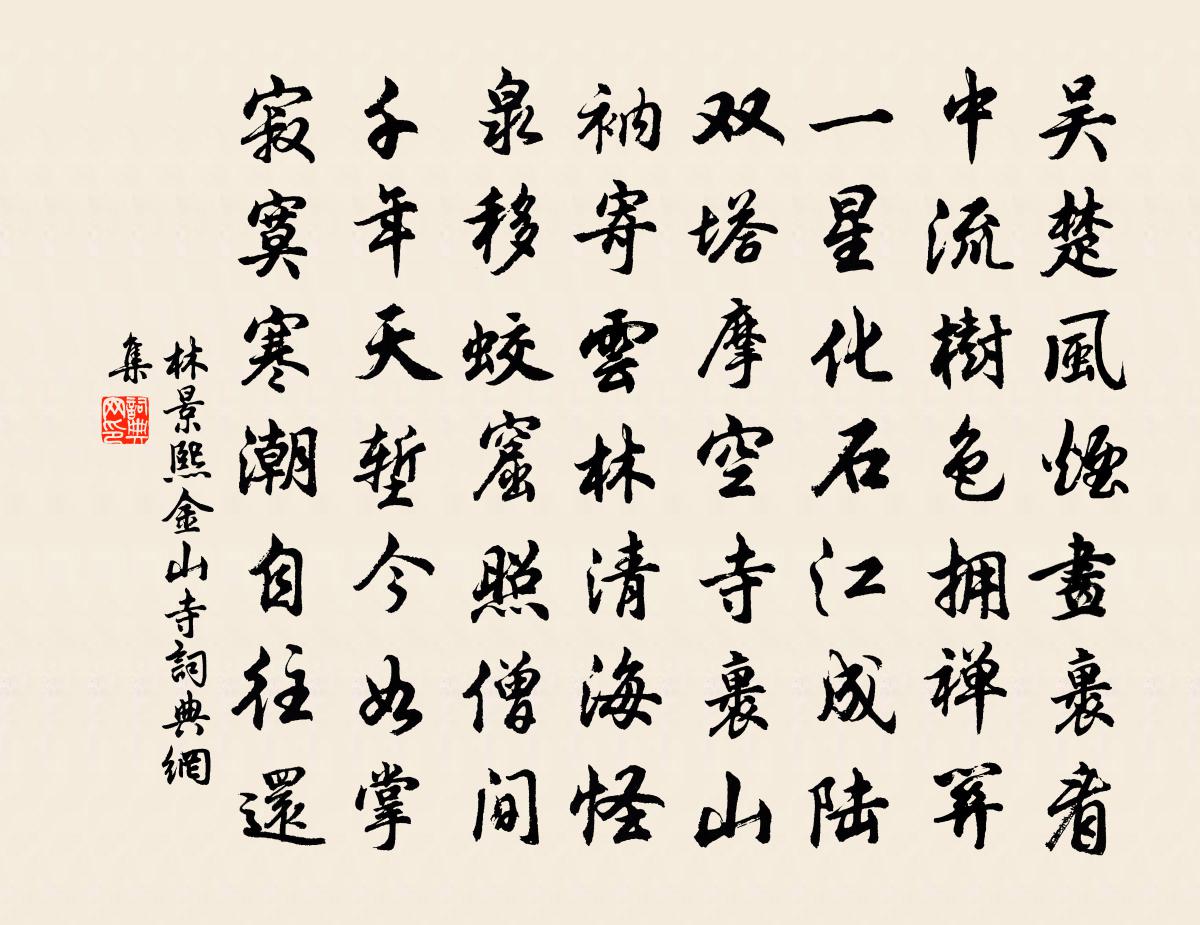 吴楚風煙畫裹看
中流樹色拥禅關
一星化石江成陆
双塔摩空寺裹山
衲寄雲林清海怪
泉移蛟窟照僧间
千年天塹今如掌
寂寞寒潮自往還
林景熙金山寺詞典網
集
詞典网印